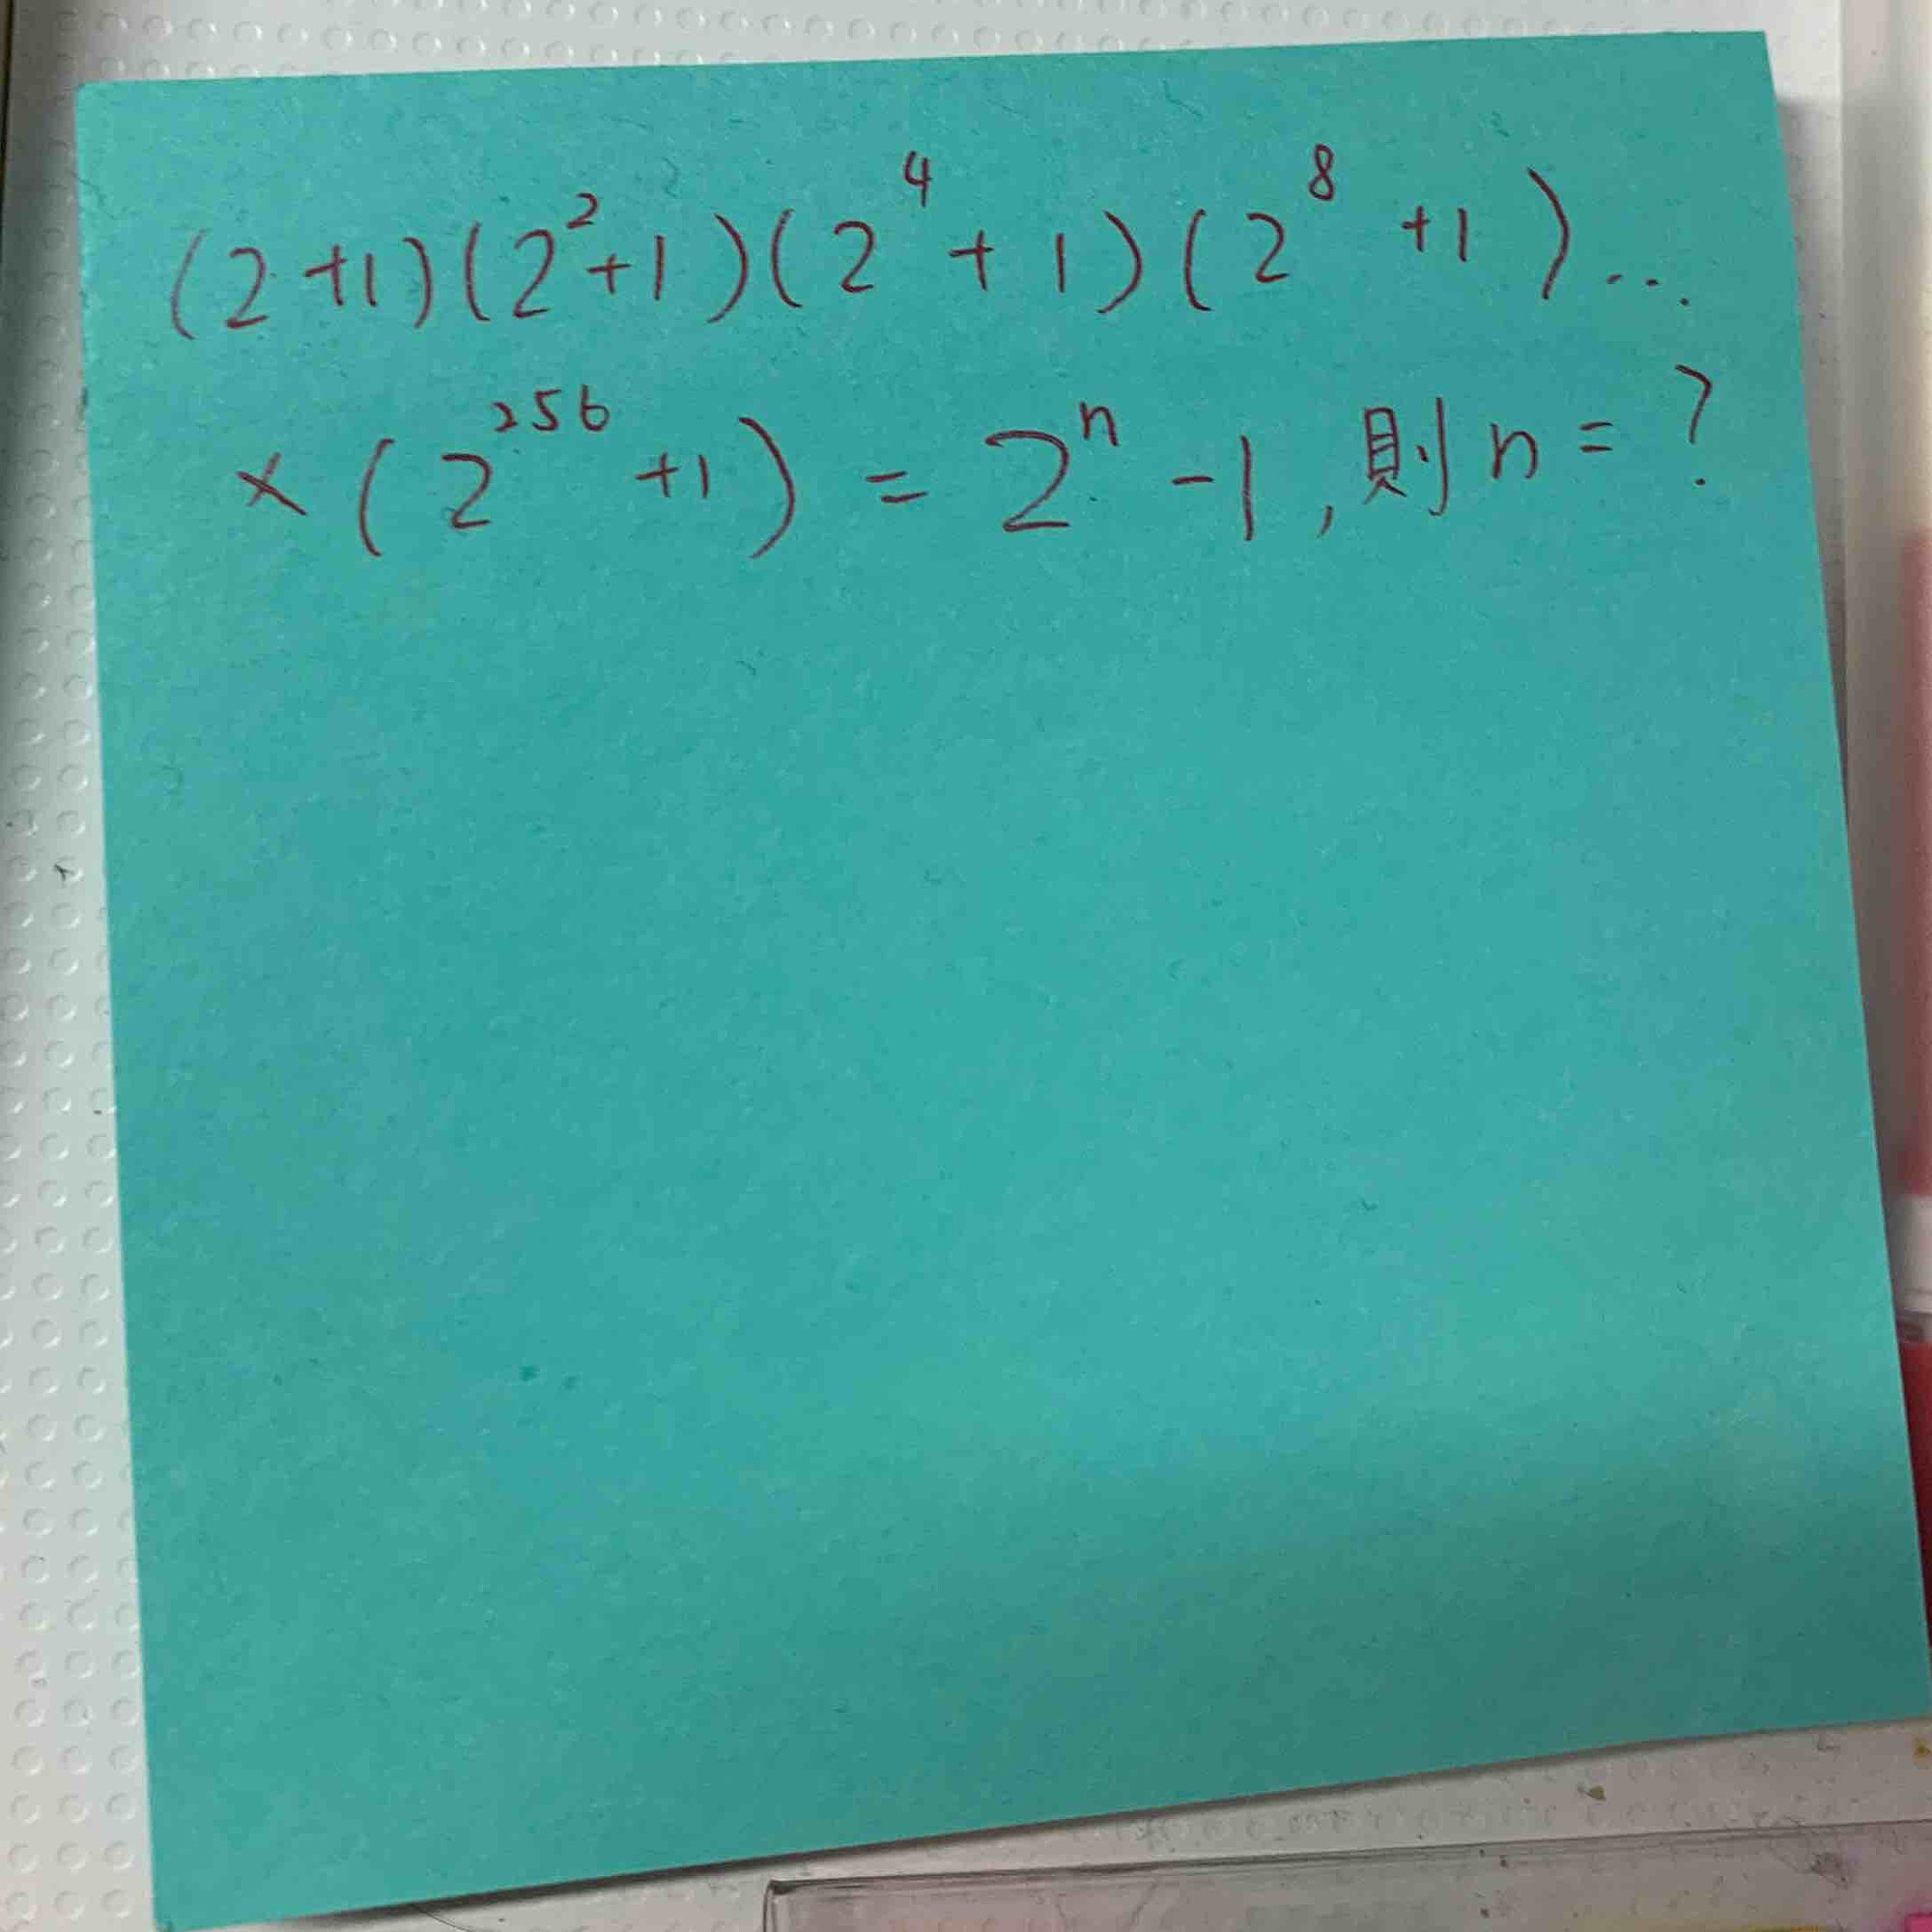 (2+1)(2²+1)(2⁴+1)(2⁸+1)...
×(2²⁵⁶+1)=2ⁿ-1,則n=?